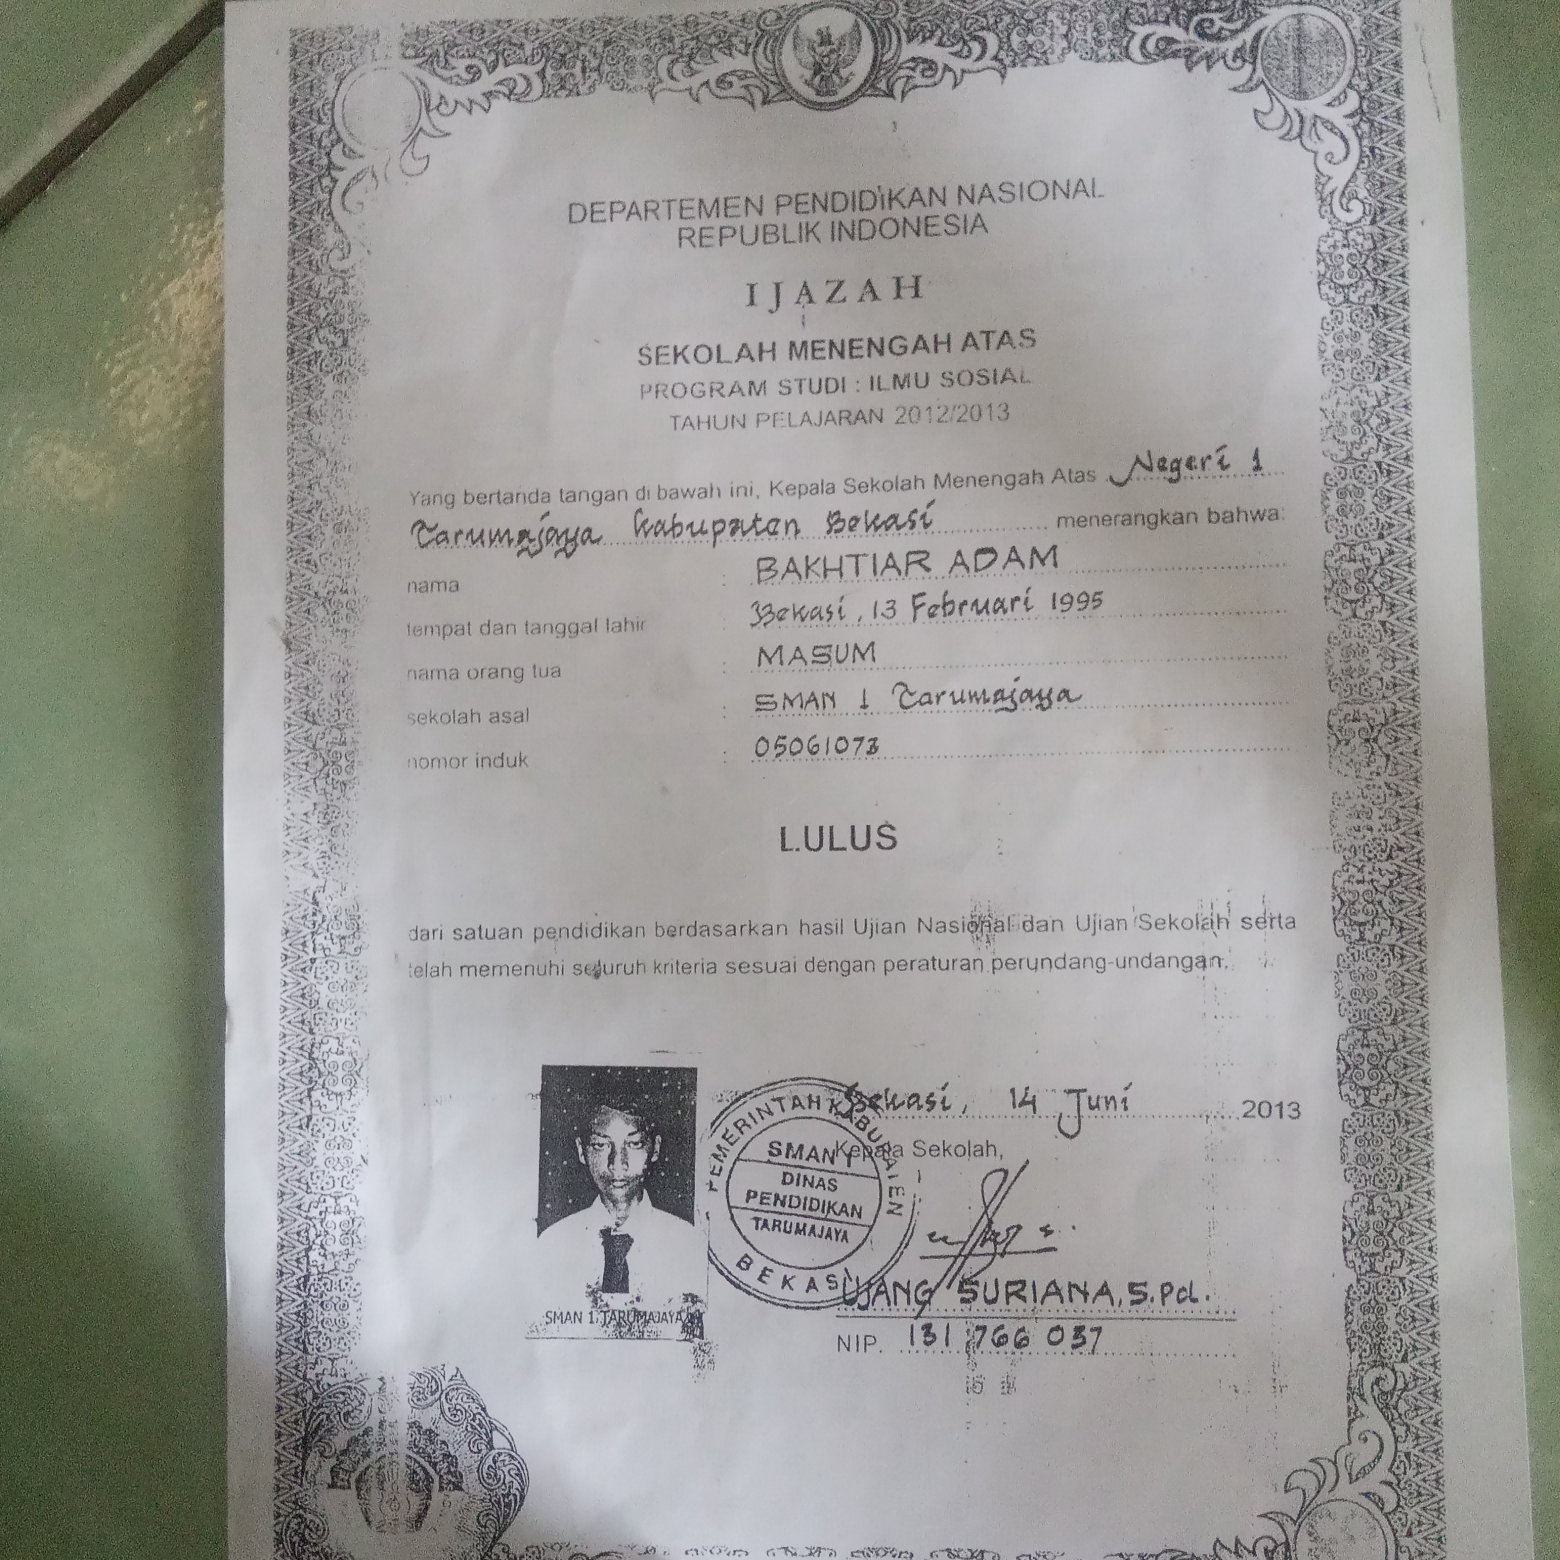 DEPARTEMEN PENDIDIKAN NASIONAL
REPUBLIK INDONESIA
IJAZAH
SEKOLAH MENENGAH ATAS
PROGRAM STUDI : ILMU SOSIAL
TAHUN PELAJARAN 2012/2013
Yang bertanda tangan di bawah ini, Kepala Sekolah Menengah Atas Negeri 1
Tarumajaya Kabupaten Bekasi menerangkan bahwa:
nama : BAKHTIAR ADAM
tempat dan tanggal lahir : Bekasi, 13 Februari 1995
nama orang tua : MASUM
sekolah asal : SMAN 1 Tarumajaya
nomor induk : 05061073
LULUS
dari satuan pendidikan berdasarkan hasil Ujian Nasional dan Ujian Sekolah serta
telah memenuhi seluruh kriteria sesuai dengan peraturan perundang-undangan.
Bekasi, 14 Juni 2013
Kepala Sekolah,
PEMERINTAH KABUPATEN
SMAN 1
DINAS
PENDIDIKAN
TARUMAJAYA
BEKASI
UJANG SURIANA, S.Pd.
SMAN 1 TARUMAJAYA
NIP. 131 766 037